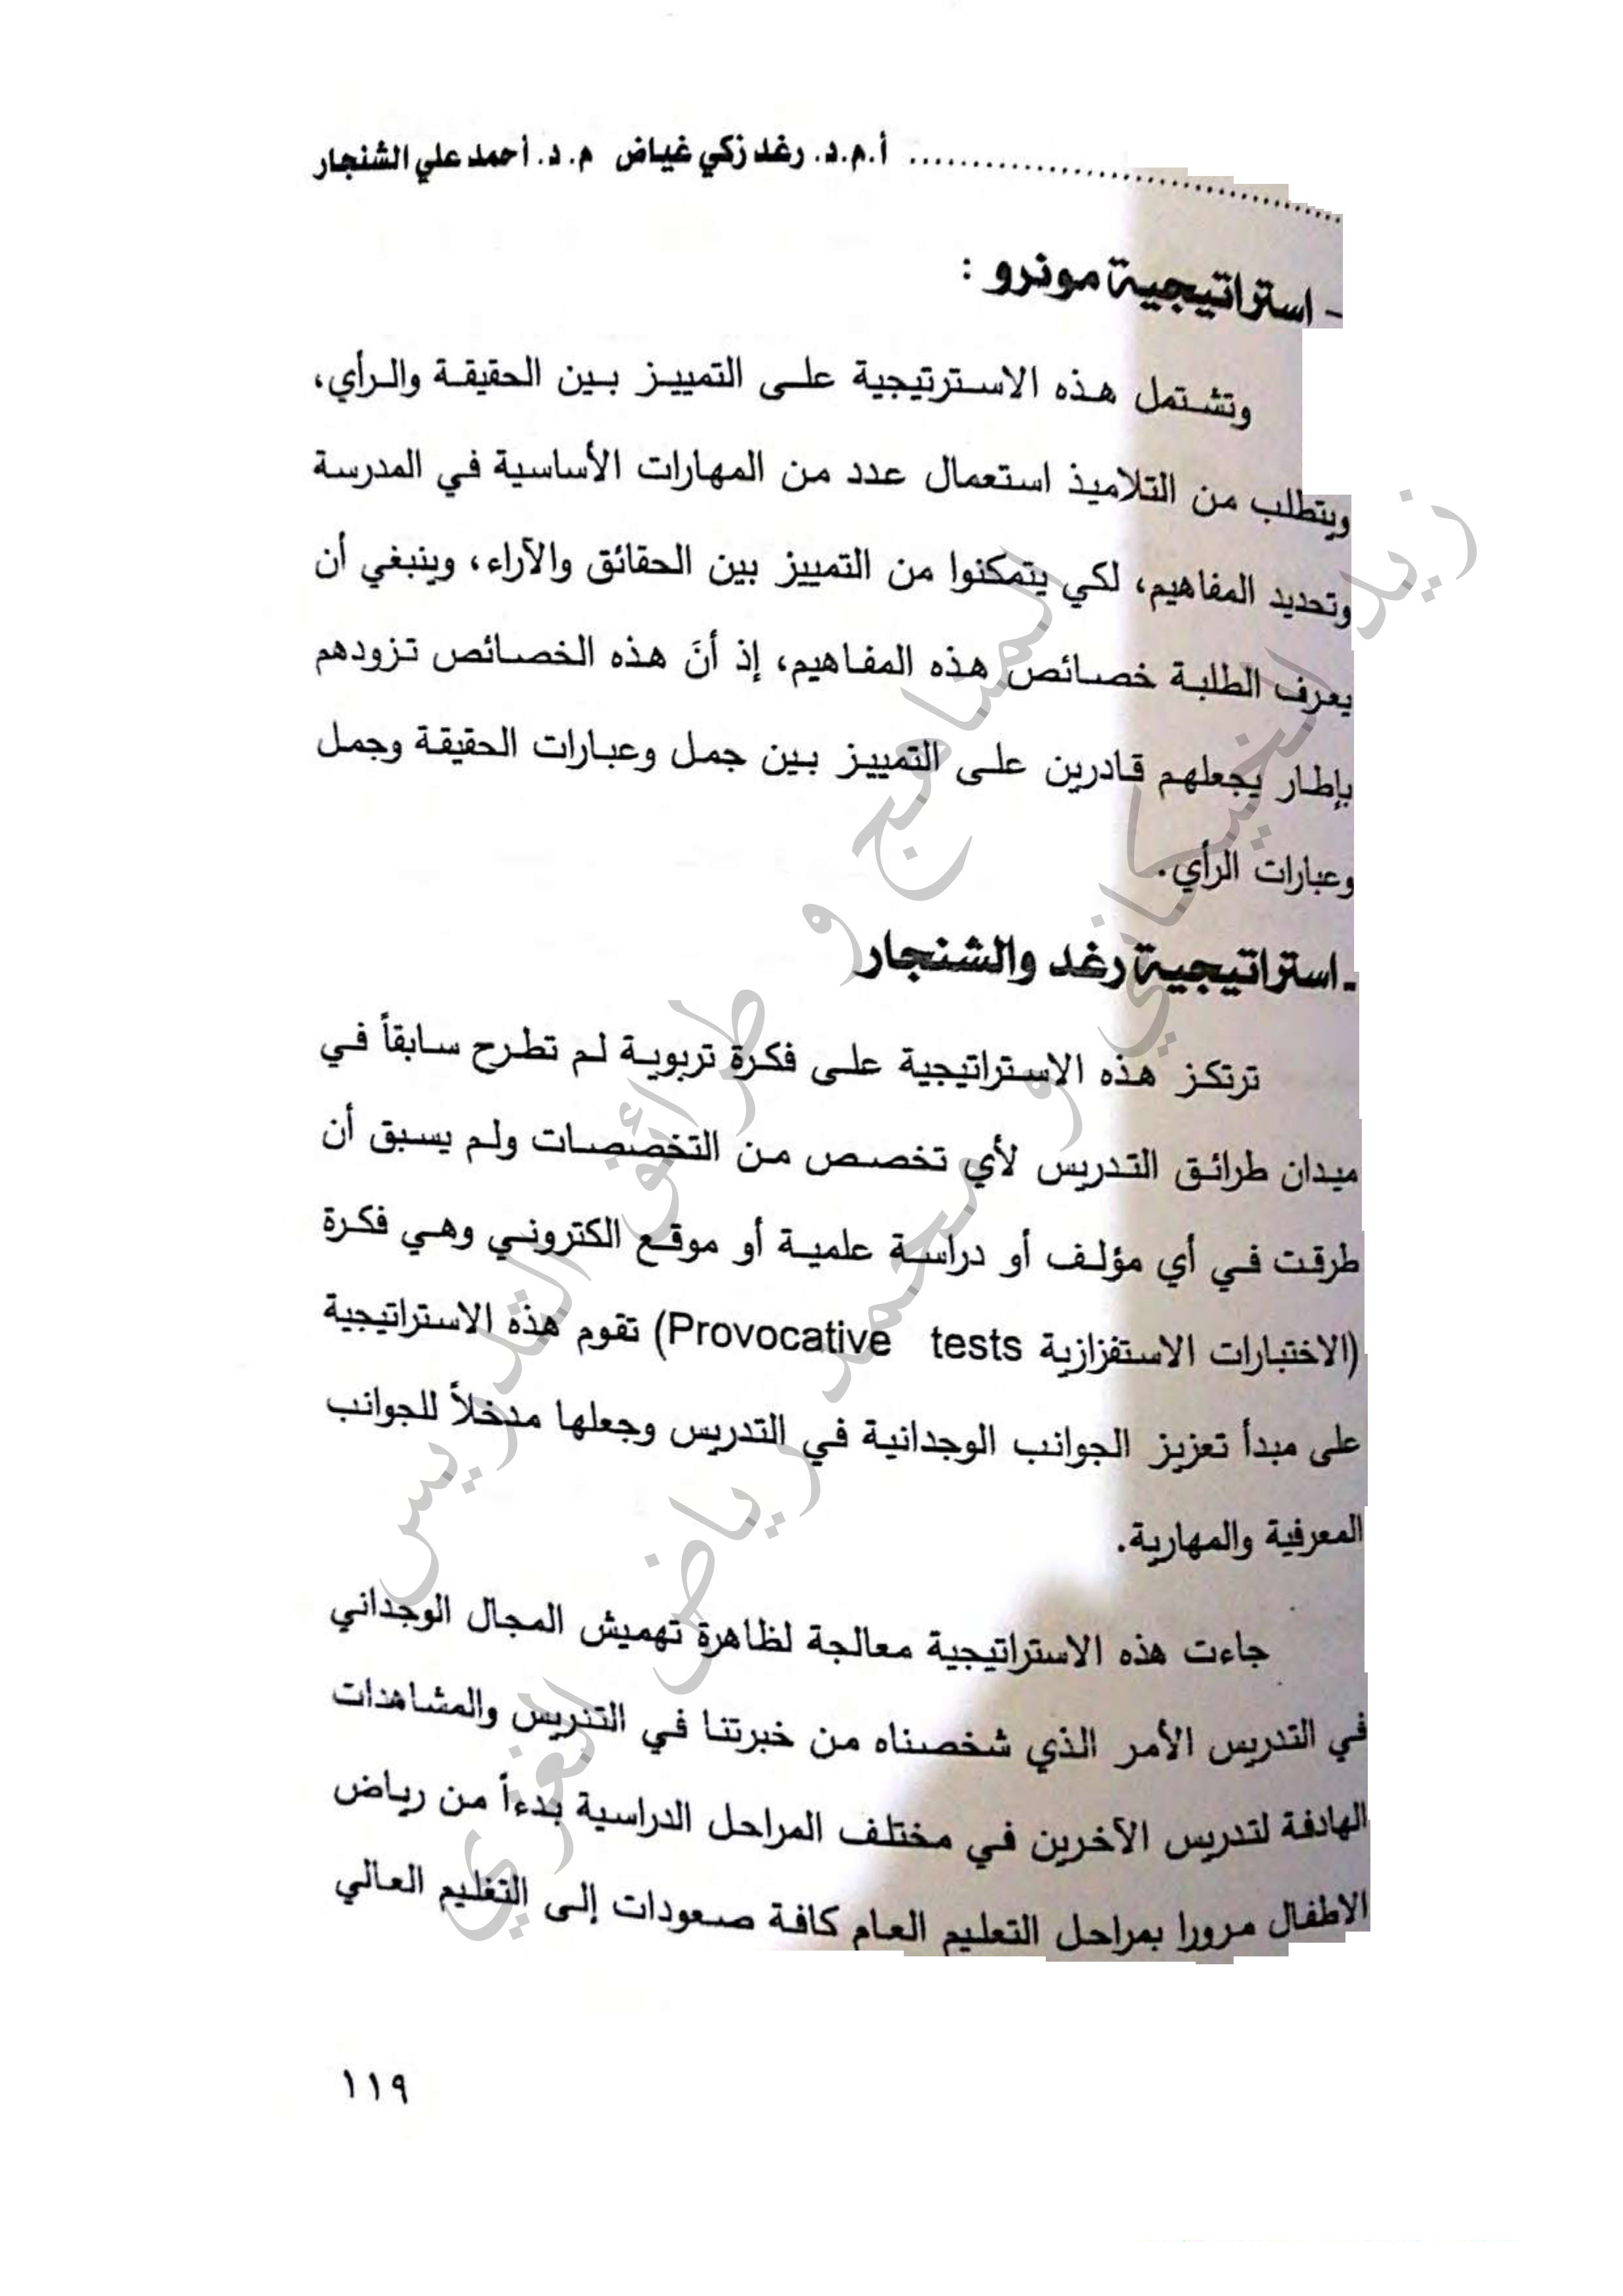 ................................ أ.م.د. رغد زكي غياض م. د. أحمد علي الشنجار
- استراتيجية مونرو :
وتشتمل هذه الاسترتيجية على التمييز بين الحقيقة والرأي،
ويتطلب من التلاميذ استعمال عدد من المهارات الأساسية في المدرسة
وتحديد المفاهيم، لكي يتمكنوا من التمييز بين الحقائق والآراء، وينبغي أن
يعرف الطلبة خصائص هذه المفاهيم، إذ أنَ هذه الخصائص تزودهم
بإطار يجعلهم قادرين على التمييز بين جمل وعبارات الحقيقة وجمل
وعبارات الرأي.
- استراتيجية رغد والشنجار
ترتكز هذه الاستراتيجية على فكرة تربوية لم تطرح سابقاً في
ميدان طرائق التدريس لأي تخصص من التخصصات ولم يسبق أن
طرقت في أي مؤلف أو دراسة علمية أو موقع الكتروني وهي فكرة
(الاختبارات الاستفزازية Provocative tests) تقوم هذه الاستراتيجية
على مبدأ تعزيز الجوانب الوجدانية في التدريس وجعلها مدخلاً للجوانب
المعرفية والمهارية.
جاءت هذه الاستراتيجية معالجة لظاهرة تهميش المجال الوجداني
في التدريس الأمر الذي شخصناه من خبرتنا في التدريس والمشاهدات
الهادفة لتدريس الآخرين في مختلف المراحل الدراسية بدءاً من رياض
الاطفال مرورا بمراحل التعليم العام كافة صعودات إلى التعليم العالي
١١٩
المناهج و طرائق التدريس
زيد الخيكاني و محمد رياض الغزي